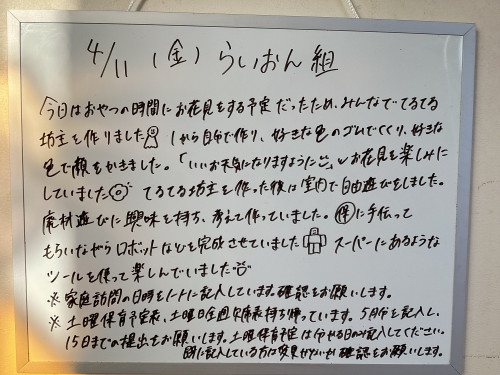 4/11 (金) らいおん組
今日はおやつの時間にお花見をする予定だったため、みんなでてるてる
坊主を作りました 1から自分で作り、好きな色のゴムでくくり、好きな
色で顔をかきました。「いいお天気になりますように」とお花見を楽しみに
していました てるてる坊主を作った後は室内で自由遊びをしました。
廃材遊びに興味を持ち、考えて作っていました。保に手伝って
もらいながらロボットなどを完成させていました スーパーにあるような
ツールを使って楽しんでいました
※家庭訪問の日時をノートに記入しています。確認をお願いします。
※土曜保育予定表、土曜日全週欠席表持ち帰っています。5月分を記入し、
15日までの提出をお願いします。土曜保育予定は 日のみ記入してください。
既に記入している方は変更がないか確認をお願いします。